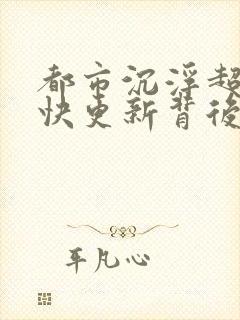 都市沉浮超
快更新背後
平凡心